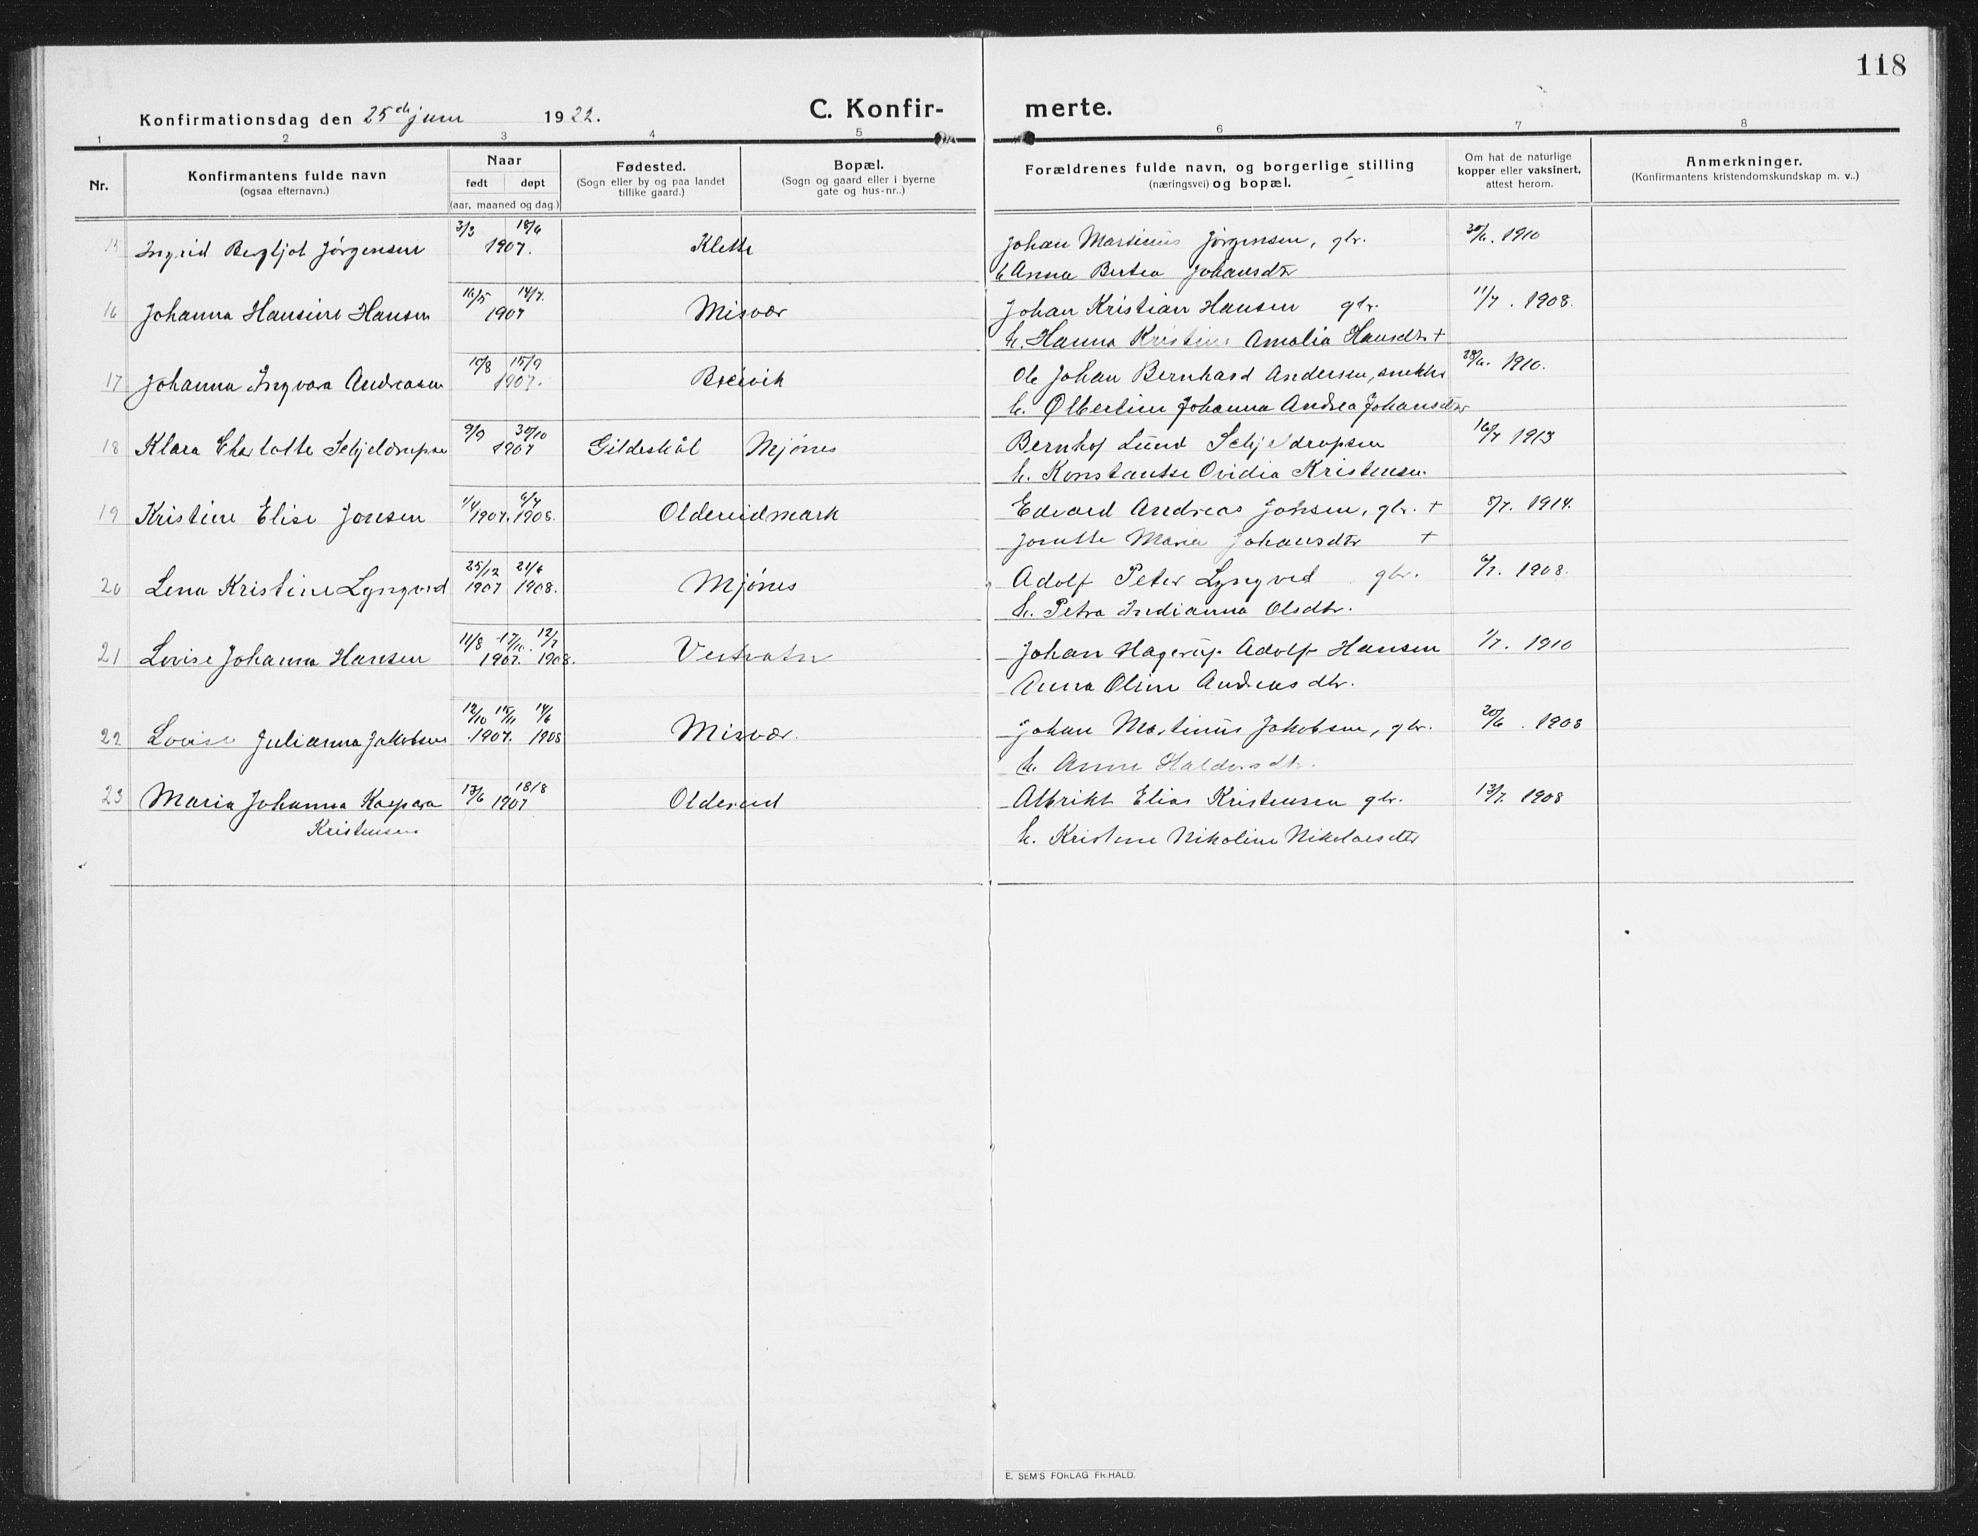 118
Konfirmationsdag den 25de juni 1922. C. Konfirmerte.
1 2 3 4 5 6 7 8
Nr. Konfirmantens fulde navn (ogsaa efternavn.) Naar født døpt (aar, maaned og dag.) Fødested. (Sogn eller by og paa landet tillike gaard.) Bopæl. (Sogn og gaard eller i byerne gate og hus-nr..) Forældrenes fulde navn, og borgerlige stilling (næringsvei) og bopæl. Om hat de naturlige kopper eller vaksinert, attest herom. Anmerkninger. (Konfirmantens kristendomskundskap m. v..)
15 Ingrid Bergljot Jørgensen 3/3 18/6 1907. Klette Johan Martinus Jørgensen, gbr. 30/6. 1910
h Anna Bertea Johansdtr
16 Johanna Hansine Hansen 16/5 14/7. 1907 Misvær Johan Kristian Hansen gbr. 11/7. 1908.
h. Hanna Kristine Amalia Hansdtr +
17 Johanna Ingvara Andreasen 15/8 15/9 1907. Breivik Ole Johan Bernhard Andersen, snekker 28/6. 1910.
h. Olbertine Johanna Andrea Johansdtr
18 Klara Charlotte Schjeldrupsen 9/9 30/10 1907 Gildeskål Mjønes Bernhof Lund Schjeldrupsen 16/7 1913
h. Konstantse Ovidia Kristensen.
19 Kristine Elise Jonsen 1/4 1907. 6/7 1908. Oldereidmark Edvard Andreas Johsen, gbr. + 8/7. 1914.
Jonette Maria Johansdtr +
20 Lena Kristine Lyngved 25/12 1907 21/6 1908. Mjønes Adolf Peter Lyngved gbr. 6/7. 1908.
h. Petra Indianna Olsdtr.
21 Lovise Johanna Hansen 11/8 17/10. 12/7 1907. 1908. Vestvatn Johan Hagerup Adolf Hansen 1/7. 1910
Anna Oline Andreasdtr.
22 Lovise Julianna Jakobsen 12/10 15/11 14/6 1907. 1908 Misvær. Johan Martinus Jakobsen, gbr. 20/6. 1908
h. Anne Haldorsdtr.
23 Maria Johanna Kaspara 13/6 18/8 1907 Oldereid Albrikt Elias Kristensen gbr. 13/7. 1908
Kristensen h. Kristine Nikoline Nikolaisdtr
E. SEM'S FORLAG FR.HALD.